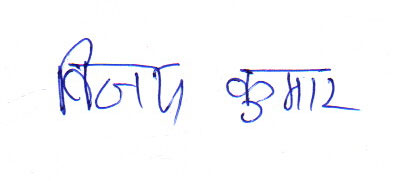 विजय कुमार